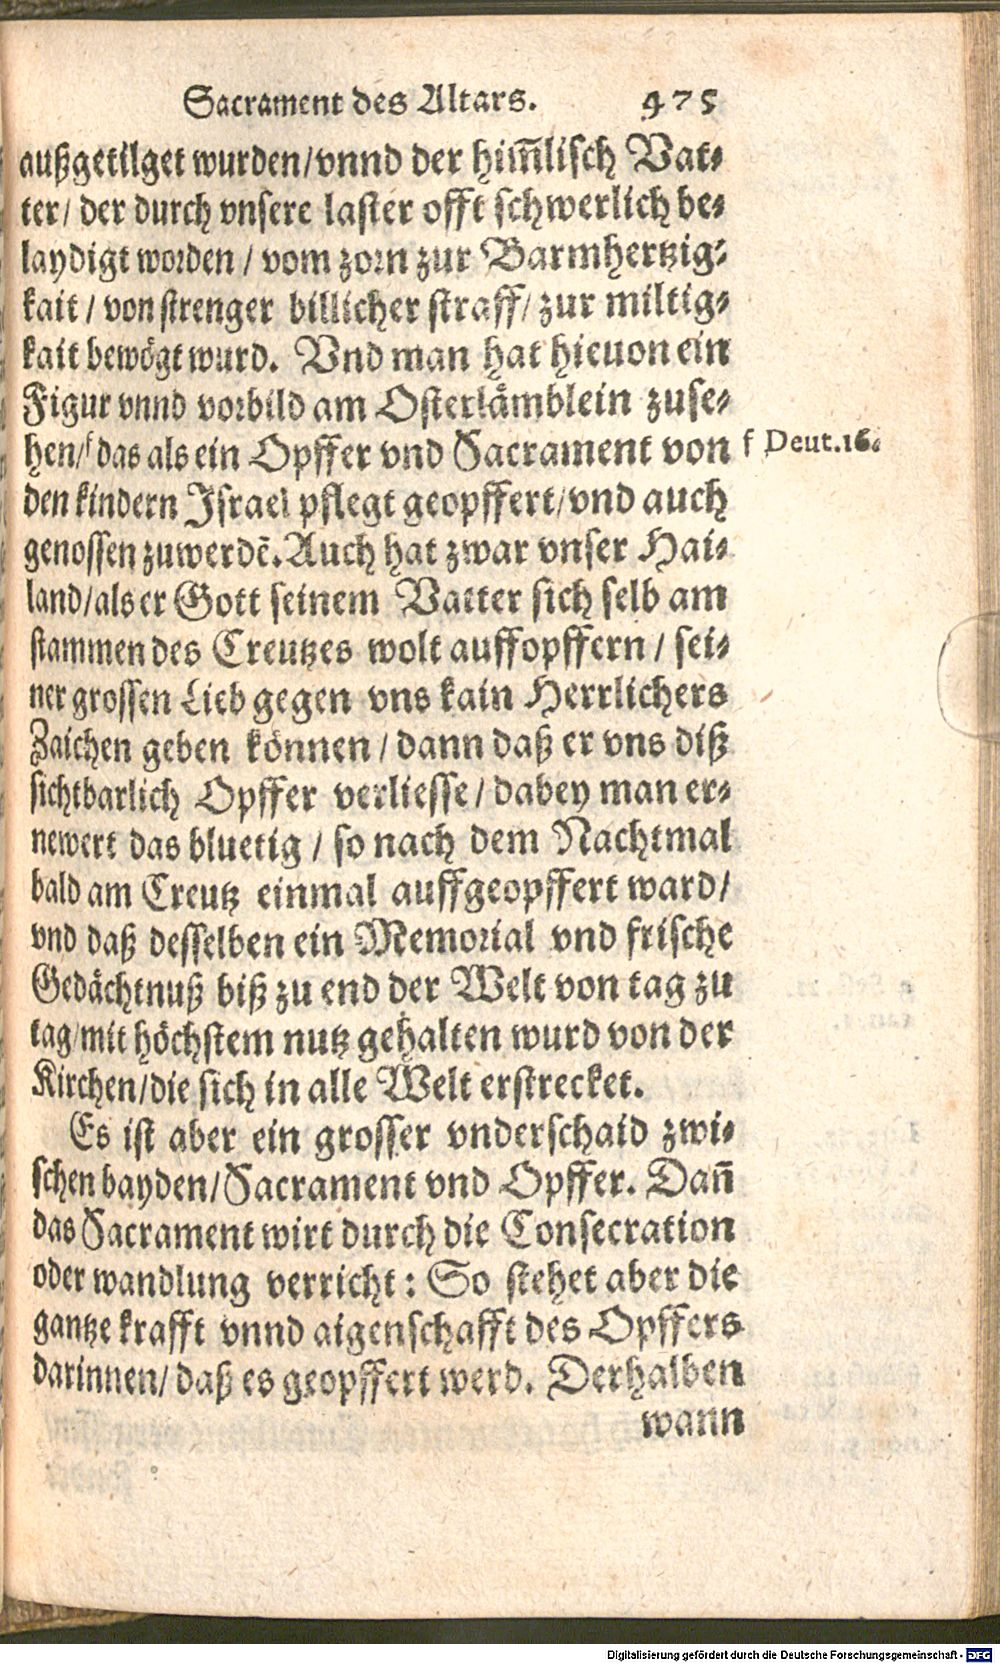 Sacrament des Altars. 475
außgetilget wurden/vnnd der him̃lisch Vat⸗
ter/ der durch vnsere laster offt schwerlich be⸗
laydigt worden / vom zorn zur Barmhertzig⸗
kait / von strenger billicher straff/ zur miltig⸗
kait bewögt wurd. Vnd man hat hieuon ein
Figur vnnd vorbild am Osterlämblein zuse⸗
hen/ f das als ein Opffer vnd Sacrament von
f Deut.16.
den kindern Israel pflegt geopffert/vnd auch
genossen zuwerdẽ. Auch hat zwar vnser Hai⸗
land/als er Gott seinem Vatter sich selb am
stammen des Creutzes wolt auffopffern / sei⸗
ner grossen Lieb gegen vns kain Herrlichers
Zaichen geben können / dann daß er vns diß
sichtbarlich Opffer verliesse / dabey man er⸗
newert das bluetig / so nach dem Nachtmal
bald am Creutz einmal auffgeopffert ward/
vnd daß desselben ein Memorial vnd frische
Gedächtnuß biß zu end der Welt von tag zu
tag/mit höchstem nutz gehalten wurd von der
Kirchen/die sich in alle Welt erstrecket.
Es ist aber ein grosser vnderschaid zwi⸗
schen bayden/Sacrament vnd Opffer. Dañ
das Sacrament wirt durch die Consecration
oder wandlung verricht: So stehet aber die
gantze krafft vnnd aigenschafft des Opffers
darinnen/ daß es geopffert werd. Derhalben
wann
Digitalisierung gefördert durch die Deutsche Forschungsgemeinschaft - DFG